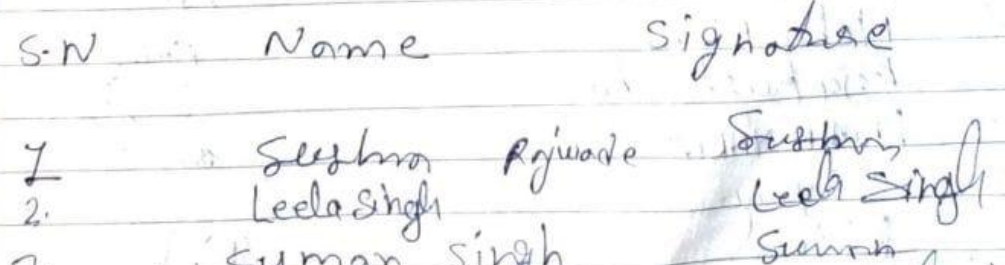 S.N Name Signature
1 Sushma Rajwade Sushma
2. Leela Singh Leela Singh
Suman Singh Suman